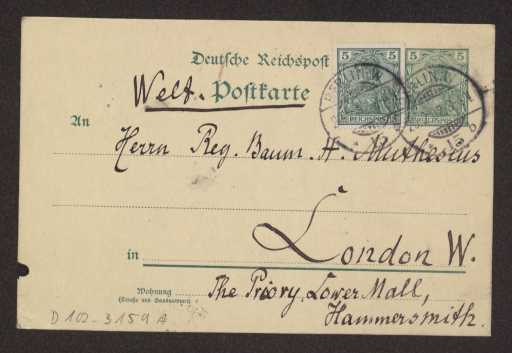 Deutsche Reichspost
Welt-Postkarte
5 5 5 5
REICHSPOST
BERLIN.W.
An
Herrn Reg. Baum. H. Muthesius
London W.
in
Wohnung
(Straße und Hausnummer)
The Priory, Lower Mall,
Hammersmith.
D 102-3159 A